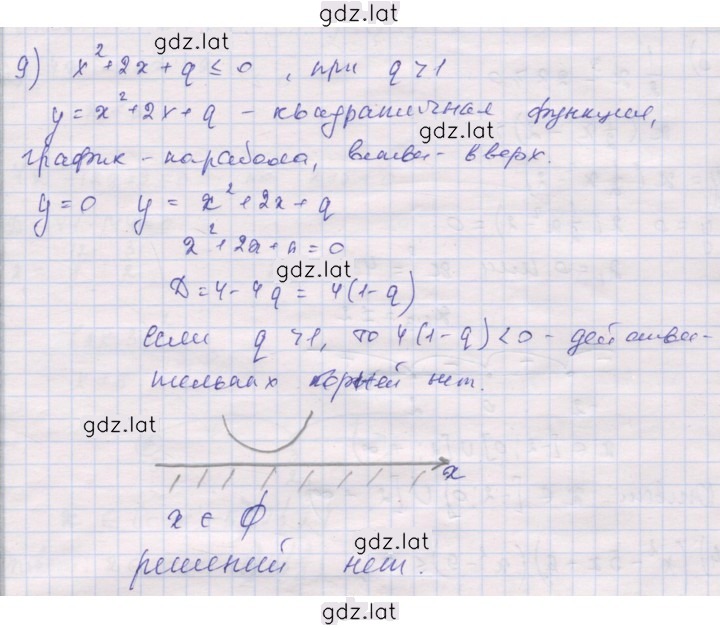 gdz.lat
gdz.lat
9) x²+2x+q ≤ 0, при q>1
y=x²+2x+q - квадратичная функция,
gdz.lat
график - парабола, ветви - вверх.
y=0 y = x²+2x+q
x²+2x+q=0
gdz.lat
D=4-4q = 4(1-q)
Если q>1, то 4(1-q)<0 - действи-
тельных корней нет.
gdz.lat
x
x ∈ ∅
gdz.lat
решений нет.
gdz.lat